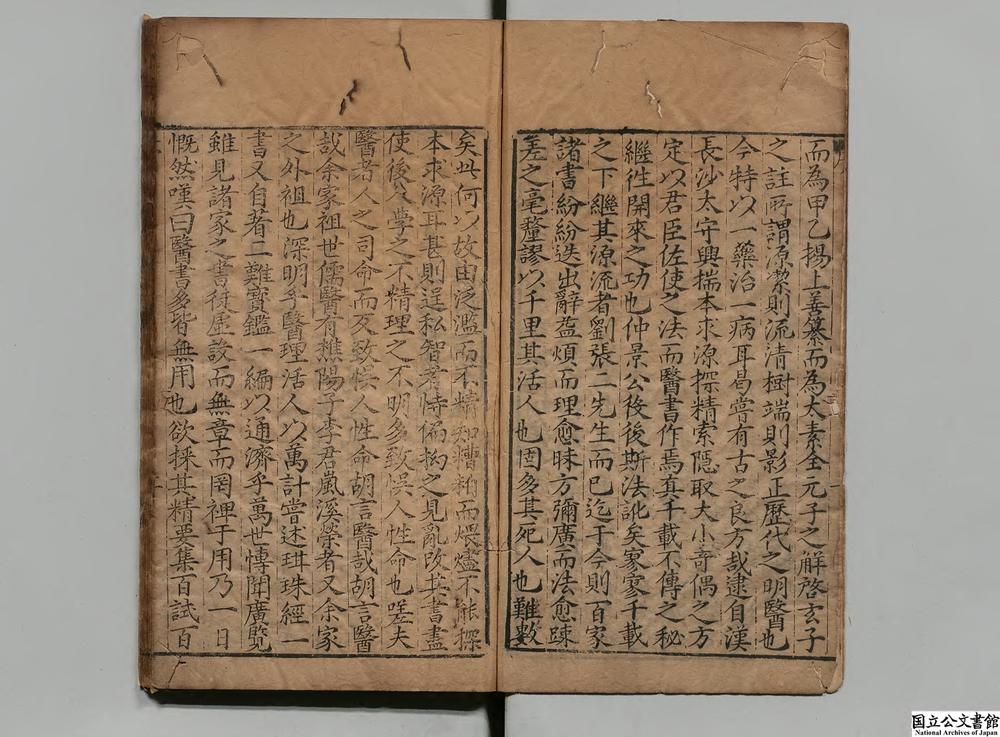 而為甲乙揚上善纂而為太素全元子之解啓玄子
之註所謂源潔則流清樹端則影正歷代之明醫也
今特以一藥治一病耳曷嘗有古之良方哉逮自漢
長沙太守興揣本求源探精索隠取大小竒偶之方
定以君臣佐使之法而醫書作焉真千載不傳之秘
繼徃開來之功也仲景公後後斯法訛矣寥寥千載
之下繼其源流者劉張二先生而已迄于今則百家
諸書紛紛迭出辭益煩而理愈昧方彌廣而法愈踈
差之毫釐謬以千里其活人也固多其死人也難數
矣此何以故由泛濫而不精知糟粕而煨燼不能探
本求源耳甚則逞私智者恃偏拗之見亂改其書盡
使後人學之不精理之不明多致悞人性命也嗟夫
醫者人之司命而反致悞人性命胡言醫哉胡言醫
哉余家祖世儒醫有樵陽子李君嵐溪榮者又余家
之外祖也深明乎醫理活人以萬計嘗述琪珠經一
書又自著二難寳鑑一編以通濟乎萬世博聞廣覽
雖見諸家之書徒虛設而無章而罔裨于用乃一日
慨然嘆曰醫書多皆無用也欲採其精要集百試百
国立公文書館
National Archives of Japan